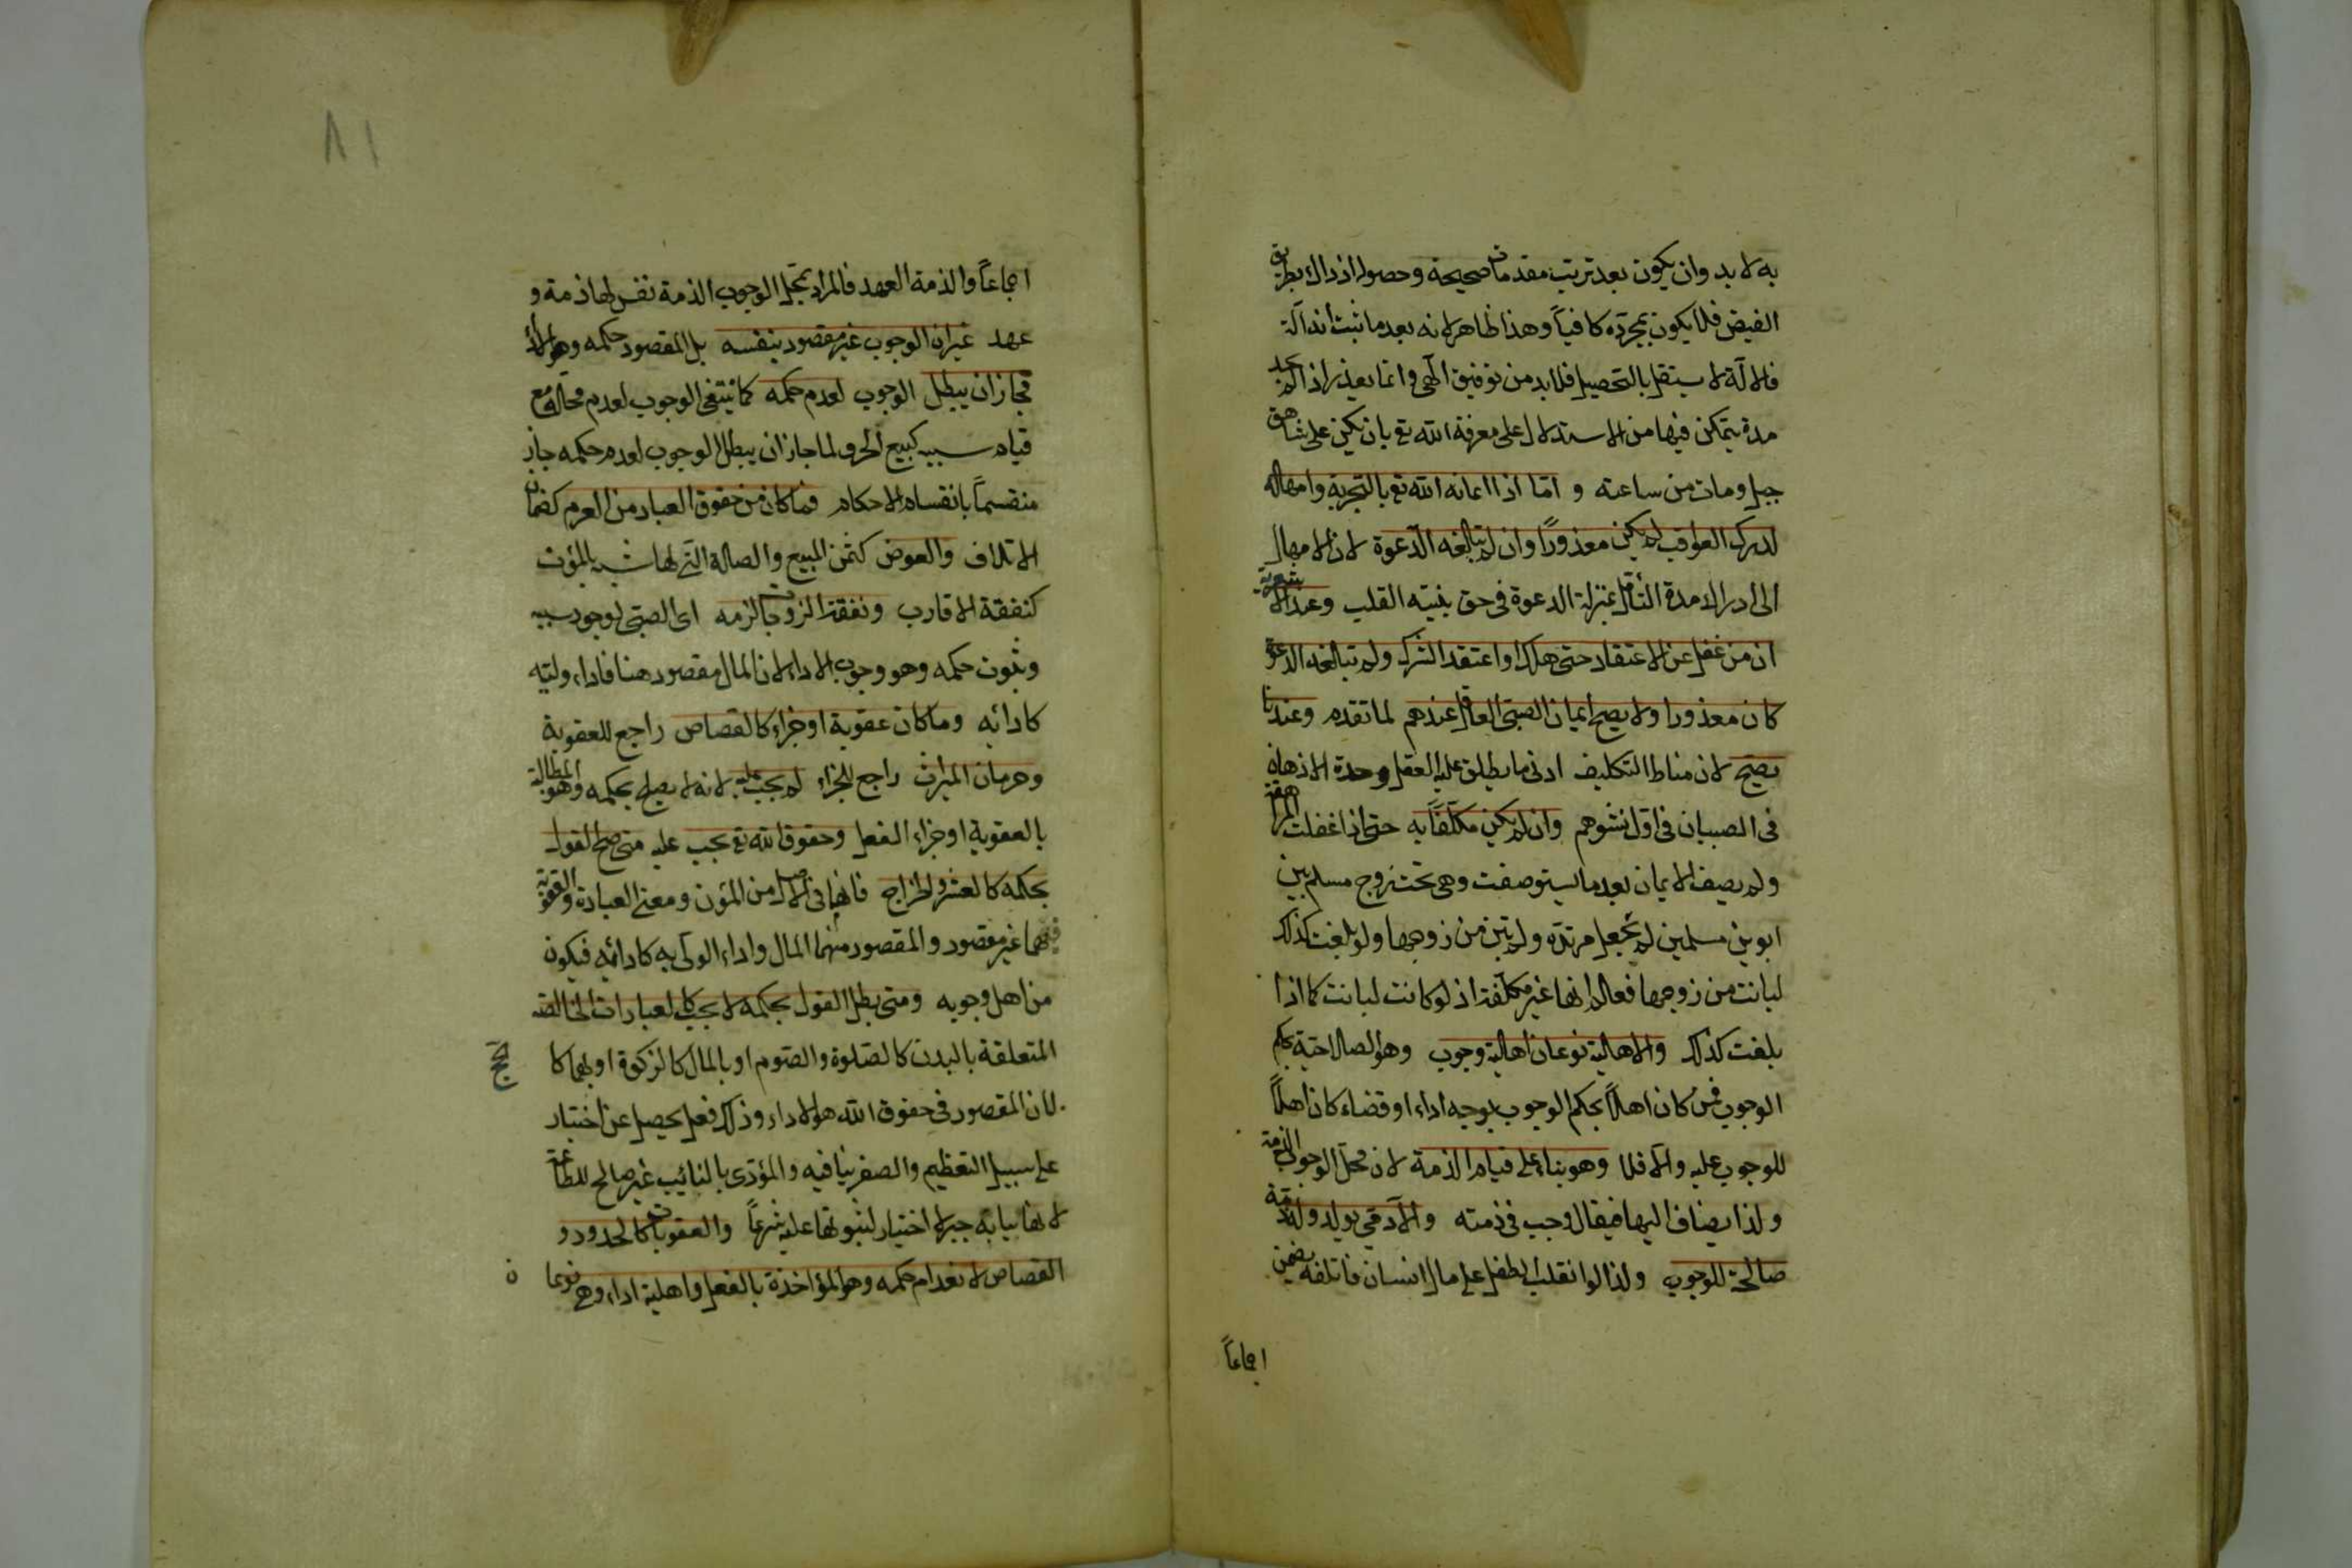 به لا بد وان يكون بعد ترتيب مقدمات صحيحة وحصول اذ ذاك بطريق
الفيض فلا يكون بمجرده كافياً وهذا ظاهر لانه بعد ما ثبت انه آلة
فالالة لا يستقل بالتحصيل فلا بد من توفيق آلهي وانما يعذر اذا لم يجد
مدة يتمكن فيها من الاستدلال على معرفة الله تع بان يكن على شاهق
جبل ومات من ساعته و امّا اذا اعانه الله تع بالتجربة وامهاله
لدرك العواقب لم يكن معذوراً وان لم تبالغه الدّعوة لان الامهال
الى ادراك مدة التأمل بمنزلة الدعوة في حق بنيته القلب وعند الاشعرية
ان من غفل عن الاعتقاد حتى هلك او اعتقد الشرك ولم تبالغه الدعوة
كان معذورا ولا يصح ايمان الصبى العاقل عندهم لما تقدم وعندنا
يصح لان مناط التكليف ادنى ما يطلق عليه العقل وحدة الاذهان
في الصبيان في اول نشوهم وان لم يكن مكلّفاً به حتى اذا غفلت المراهقة
ولم يصف الايمان بعد ما يستوصفت وهي تحت زوج مسلم بين
ابوين مسلمين لم تجعل مرتدّه ولم تبن من زوجها ولو بلغت كذلك
لبانت من زوجها فعالم انها غير مكلّفة اذ لو كانت لبانت كما اذا
بلغت كذلك والاهالية نوعان اهالية وجوب وهو الصالاحيّة بحكم
الوجوب فمن كان اهلاً بحكم الوجوب بوجه اداء او قضاء كان اهلاً
للوجوب عليه والّا فلا وهو بناء على قيام الذمة لان محلّ الوجوب الذمة
ولذا يضاف اليها فيقال وجب في ذمته والآدمي يولد وله ذمة
صالحة للوجوب ولذا لو انقلب الطفل على مال انسان فاتلفه يضمن
اجماعاً
٨١
اجماعاً والذمة العهد فالمراد بمحل الوجوب الذمة نفس لها ذمة و
عهد غير ان الوجوب غير مقصود بنفسه بل المقصود حكمه وهو الاداء
فجاز ان يبطل الوجوب لعدم حكمه كما ينتفى الوجوب لعدم محاله مع
قيام سببه كبيع الحر ولما جاز ان يبطل الوجوب لعدم حكمه جاز
منقسماً بانقسام الاحكام فما كان من حقوق العباد من الغرم كضمان
الاتلاف والعوض كثمن المبيع والصالة التي لها شبه بالمؤن
كنفقة الاقارب ونفقة الزوجات لزمه اى الصبيّ لوجود سببه
وثبوت حكمه وهو وجوب الاداء لان المال مقصود هنا فاداء وليّه
كادائه وما كان عقوبة او جزاء كالقصاص راجع للعقوبة
وحرمان الميراث راجع للجزاء لم يجب عليه لانه لا يصلح بحكمه وهو المطالبة
بالعقوبة او جزاء الفعل وحقوق الله تع يجب عليه متى صح القول
بحكمه كالعشر والخراج فانهما في الاصل من المؤن ومعنى العبادة والعقوبة
فيهما غير مقصود والمقصود منهما المال واداء الولى به كادائه فيكون
من اهل وجوبه ومتى يطل القول بحكمه لا يجب كالعبادات الخالصة
المتعلقة بالبدن كالصّلوة والصّوم او بالمال كالزكوة او بهما كالحج
لان المقصود في حقوق الله هو الاداء وذلك فعل يحصل عن اختيار
على سبيل التعظيم والصغر ينافيه والمؤدّى بالنائب غير صالح للطاعة
لانها نيابة جبر لا اختيار لثبوتها عليه شرعاً والعقوبات كالحدود و
القصاص لانعدام حكمه وهو المؤاخذة بالفعل واهلية اداء وهي نوعان